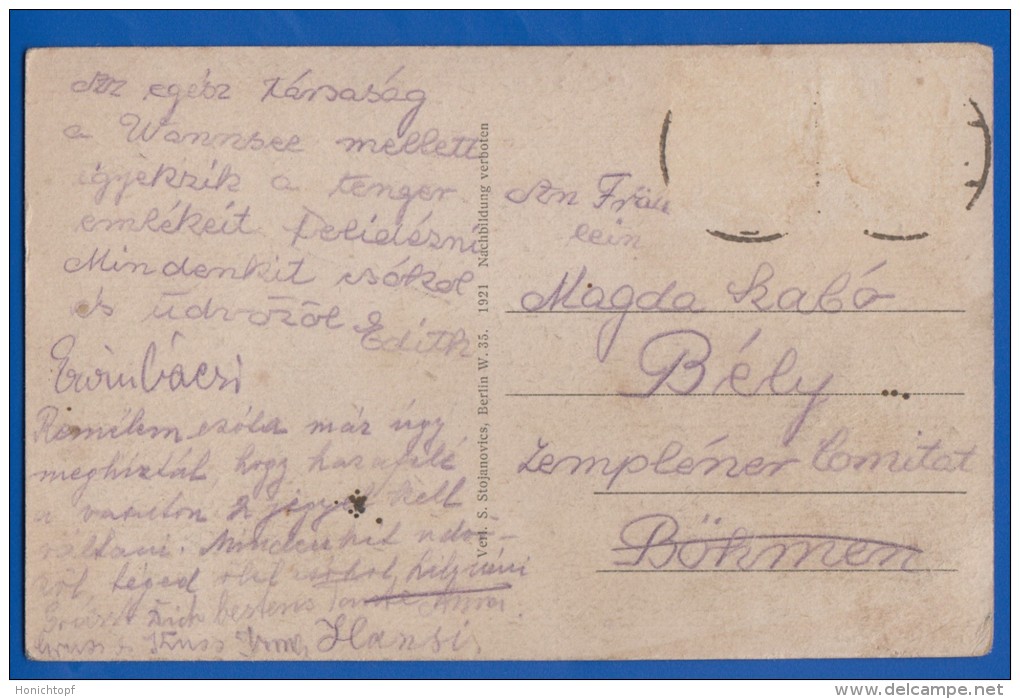 Az egész társaság
a Wannsee mellett
igyekszik a tenger
emlékeit felidézni
Mindenkit csókol
és üdvözöl Edith
Ervin bácsi
Remélem ezóta már úgy
meghíztál hogy hazafelé
a vasuton 2 jegyet kell
váltani. Mindenkit üdvö-
zöl, téged ölel csókol,
Grüsst Dich bestens Tante
Gruss & Kuss Hansi,
Verl. S. Stojanovics, Berlin W. 35. 1921 Nachbildung verboten
An Fräu
lein
Magda Szabó
Bély
Zempléner Comitat
Böhmen
Honichtopf
delcampe.net